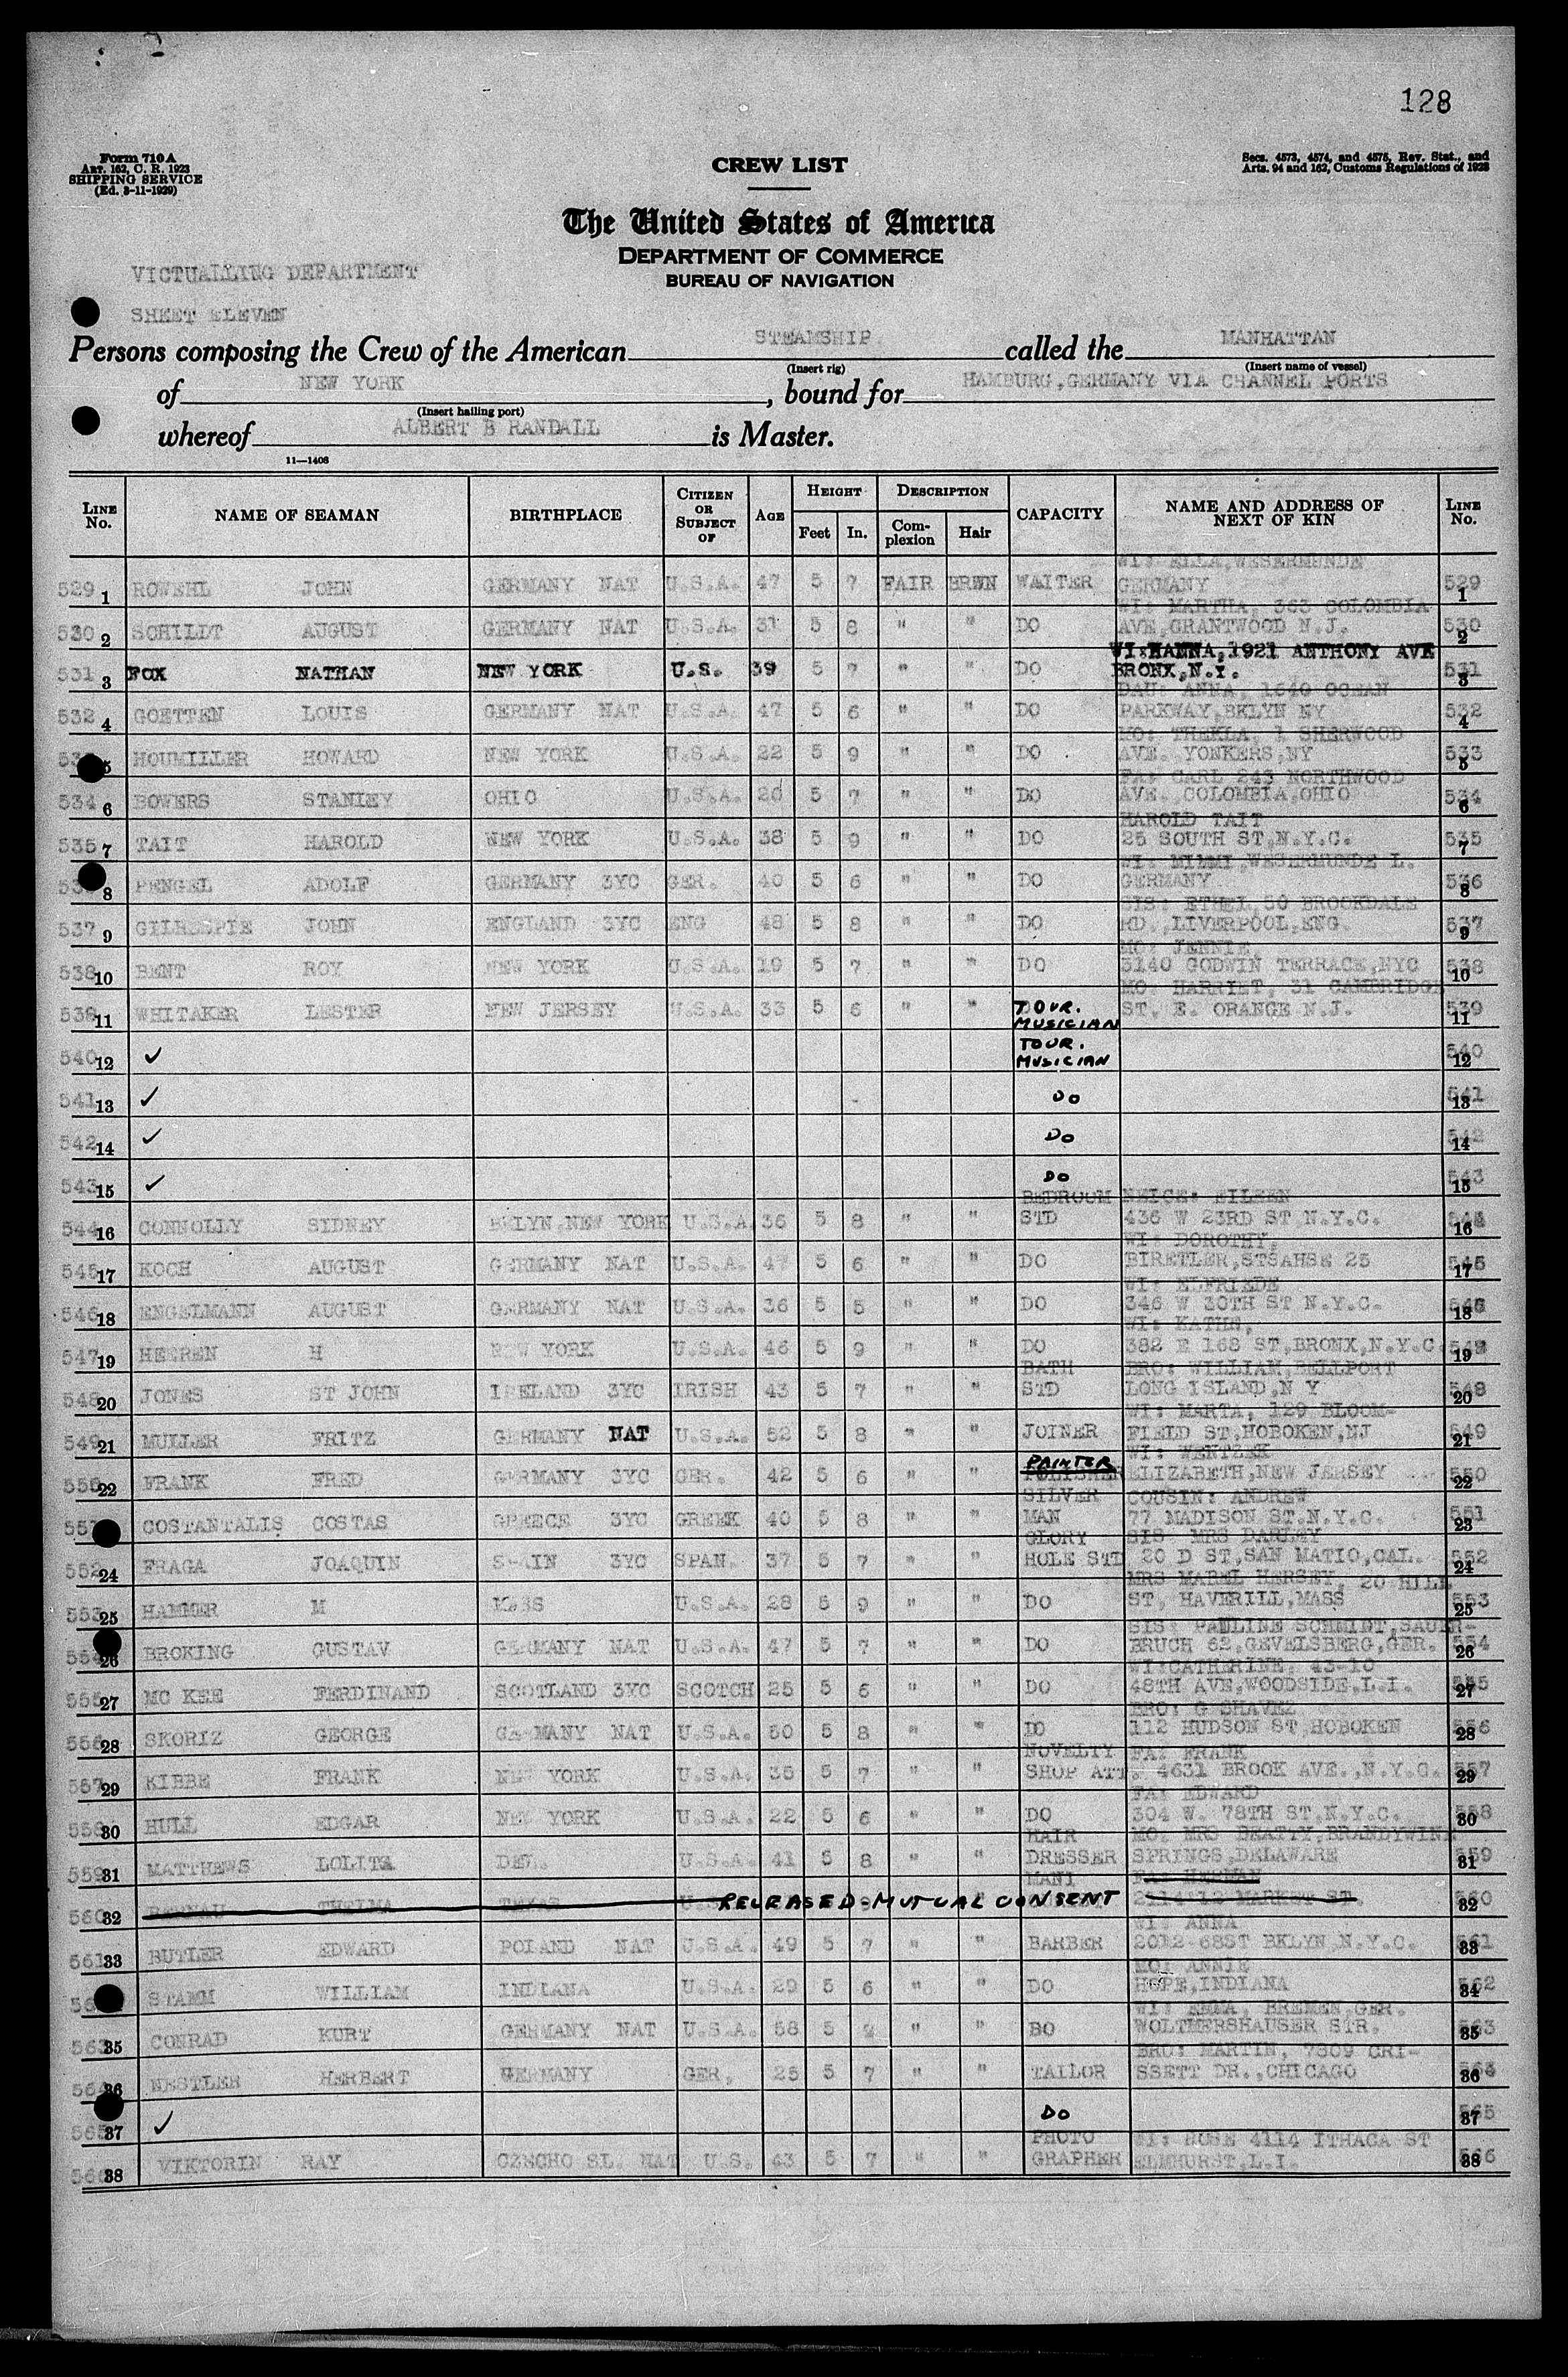 128
Form 710A
Art. 162, C. R. 1923
SHIPPING SERVICE
(Ed. 3-11-1929)
CREW LIST
Secs. 4573, 4574, and 4575, Rev. Stat., and
Arts. 94 and 162, Customs Regulations of 1923
The United States of America
DEPARTMENT OF COMMERCE
BUREAU OF NAVIGATION
VICTUALLING DEPARTMENT
SHEET ELEVEN
Persons composing the Crew of the American STEAMSHIP called the MANHATTAN
(Insert rig) (Insert name of vessel)
of NEW YORK, bound for HAMBURG,GERMANY VIA CHANNEL PORTS
(Insert hailing port)
whereof ALBERT B RANDALL is Master.
11—1408
LINE No. NAME OF SEAMAN BIRTHPLACE CITIZEN OR SUBJECT OF AGE HEIGHT Feet In. DESCRIPTION Complexion Hair CAPACITY NAME AND ADDRESS OF NEXT OF KIN LINE No.
WI: ELLA,WESERMUNDE
529 1 ROWEHL JOHN GERMANY NAT U.S.A. 47 5 7 FAIR BRWN WAITER GERMANY 529 1
WI: MARTHA, 363 COLOMBIA
530 2 SCHILDT AUGUST GERMANY NAT U.S.A. 31 5 8 " " DO AVE,GRANTWOOD N.J. 530 2
WI:HANNA,1921 ANTHONY AVE
531 3 FOX NATHAN NEW YORK U.S. 39 5 7 " " DO BRONX,N.Y. 531 3
DAU: ANNA, 1640 OCEAN
532 4 GOETTEN LOUIS GERMANY NAT U.S.A. 47 5 6 " " DO PARKWAY,BKLYN NY 532 4
MO: THEKLA, 1 SHERWOOD
5 HOUMILLER HOWARD NEW YORK U.S.A. 22 5 9 " " DO AVE. YONKERS,NY 533 5
FA: CARL 243 NORTHWOOD
534 6 BOWERS STANLEY OHIO U.S.A. 20 5 7 " " DO AVE. COLOMBIA,OHIO 534 6
HAROLD TAIT
535 7 TAIT HAROLD NEW YORK U.S.A. 38 5 9 " " DO 25 SOUTH ST,N.Y.C. 535 7
WI: MIMMI,WESERMUNDE L.
8 PENGEL ADOLF GERMANY 3YC GER. 40 5 6 " " DO GERMANY 536 8
SIS: ETHEL,50 BROOKDALE
537 9 GILHESPIE JOHN ENGLAND 3YC ENG 48 5 8 " " DO RD.,LIVERPOOL,ENG. 537 9
MO: JENNIE,
538 10 BENT ROY NEW YORK U.S.A. 19 5 7 " " DO 3140 GODWIN TERRACE,NYC 538 10
MO: HARRIET, 31 CAMBRIDGE
539 11 WHITAKER LESTER NEW JERSEY U.S.A. 33 5 6 " " TOUR. MUSICIAN ST, E. ORANGE N.J. 539 11
540 12 ✓ TOUR. MUSICIAN 540 12
541 13 ✓ DO 541 13
542 14 ✓ DO 542 14
543 15 ✓ DO 543 15
BEDROOM NEICE: EILEEN
544 16 CONNOLLY SIDNEY BKLYN,NEW YORK U.S.A. 36 5 8 " " STD 436 W 23RD ST N.Y.C. 16
WI: DOROTHY,
545 17 KOCH AUGUST GERMANY NAT U.S.A. 47 5 6 " " DO BIRETLER,STSAHSE 25 545 17
WI: ELFRIEDE
546 18 ENGELMANN AUGUST GERMANY NAT U.S.A. 36 5 5 " " DO 346 W 30TH ST N.Y.C. 18
WI: KATHN,
547 19 HEEREN H NEW YORK U.S.A. 46 5 9 " " DO 382 E 168 ST,BRONX,N.Y.C. 19
BATH BRO: WILLIAM,BELLPORT
548 20 JONES ST JOHN IRELAND 3YC IRISH 43 5 7 " " STD LONG ISLAND,N Y 548 20
WI: MARTA, 129 BLOOM-
549 21 MULLER FRITZ GERMANY NAT U.S.A. 52 5 8 " " JOINER FIELD ST,HOBOKEN,NJ 549 21
PAINTER WI: WENTZEK
550 22 FRANK FRED GERMANY 3YC GER. 42 5 6 " " POLISHER ELIZABETH,NEW JERSEY 550 22
SILVER COUSIN: ANDREW
COSTANTALIS COSTAS GREECE 3YC GREEK 40 5 8 " " MAN 77 MADISON ST.N.Y.C. 551 23
GLORY SIS: MRS DARLEY
552 24 FRAGA JOAQUIN SPAIN 3YC SPAN. 37 5 7 " " HOLE STD 20 D ST,SAN MATIO,CAL. 552 24
MRS MABEL HERSEY, 20 HILL
553 25 HAMMER M MASS U.S.A. 28 5 9 " " DO ST, HAVERILL,MASS 553 25
SIS: PAULINE SCHMIDT,SAUER-
26 BROKING GUSTAV GERMANY NAT U.S.A. 47 5 7 " " DO BRUCH 62,GEVELSBERG,GER. 554 26
WI:CATHERINE, 43-10
555 27 MC KEE FERDINAND SCOTLAND 3YC SCOTCH 25 5 6 " " DO 48TH AVE,WOODSIDE,L.I. 555 27
BRO: G SHAVEZ
556 28 SKORIZ GEORGE GERMANY NAT U.S.A. 50 5 8 " " DO 112 HUDSON ST,HOBOKEN 556 28
NOVELTY FA: FRANK
557 29 KIBBE FRANK NEW YORK U.S.A. 35 5 7 " " SHOP ATT. 4631 BROOK AVE.,N.Y.C. 557 29
FA: EDWARD
558 30 HULL EDGAR NEW YORK U.S.A. 22 5 6 " " DO 304 W. 78TH ST.N.Y.C. 558 30
HAIR MO: MRS BEATTY,BRANDYWINE
559 31 MATTHEWS LOLITA DEL. U.S.A. 41 5 8 " " DRESSER SPRINGS,DELAWARE 559 31
MANI FA: HERMAN
560 32 BARNAU THELMA TEXAS U.S. RELEASED MUTUAL CONSENT MARKET ST. 560 32
WI: ANNA
561 33 BUTLER EDWARD POLAND NAT U.S.A. 49 5 7 " " BARBER 2012-68ST BKLYN N.Y.C. 561 33
MO: ANNIE
STAMM WILLIAM INDIANA U.S.A. 29 5 6 " " DO HOPE,INDIANA 562 34
WI: EMMA, BREMEN,GER.
563 35 CONRAD KURT GERMANY NAT U.S.A. 58 5 " " DO WOLTMERSHAUSER STR. 563 35
BRO: MARTIN, 7809 CRI-
564 36 NESTLER HERBERT GERMANY GER, 25 5 7 " " TAILOR SSETT DR.,CHICAGO 36
565 37 ✓ DO 565 37
PHOTO WI: ROSE 4114 ITHACA ST
566 38 VIKTORIN RAY CZECHO SL. NAT U.S. 43 5 7 " " GRAPHER ELMHURST,L.I. 566 38